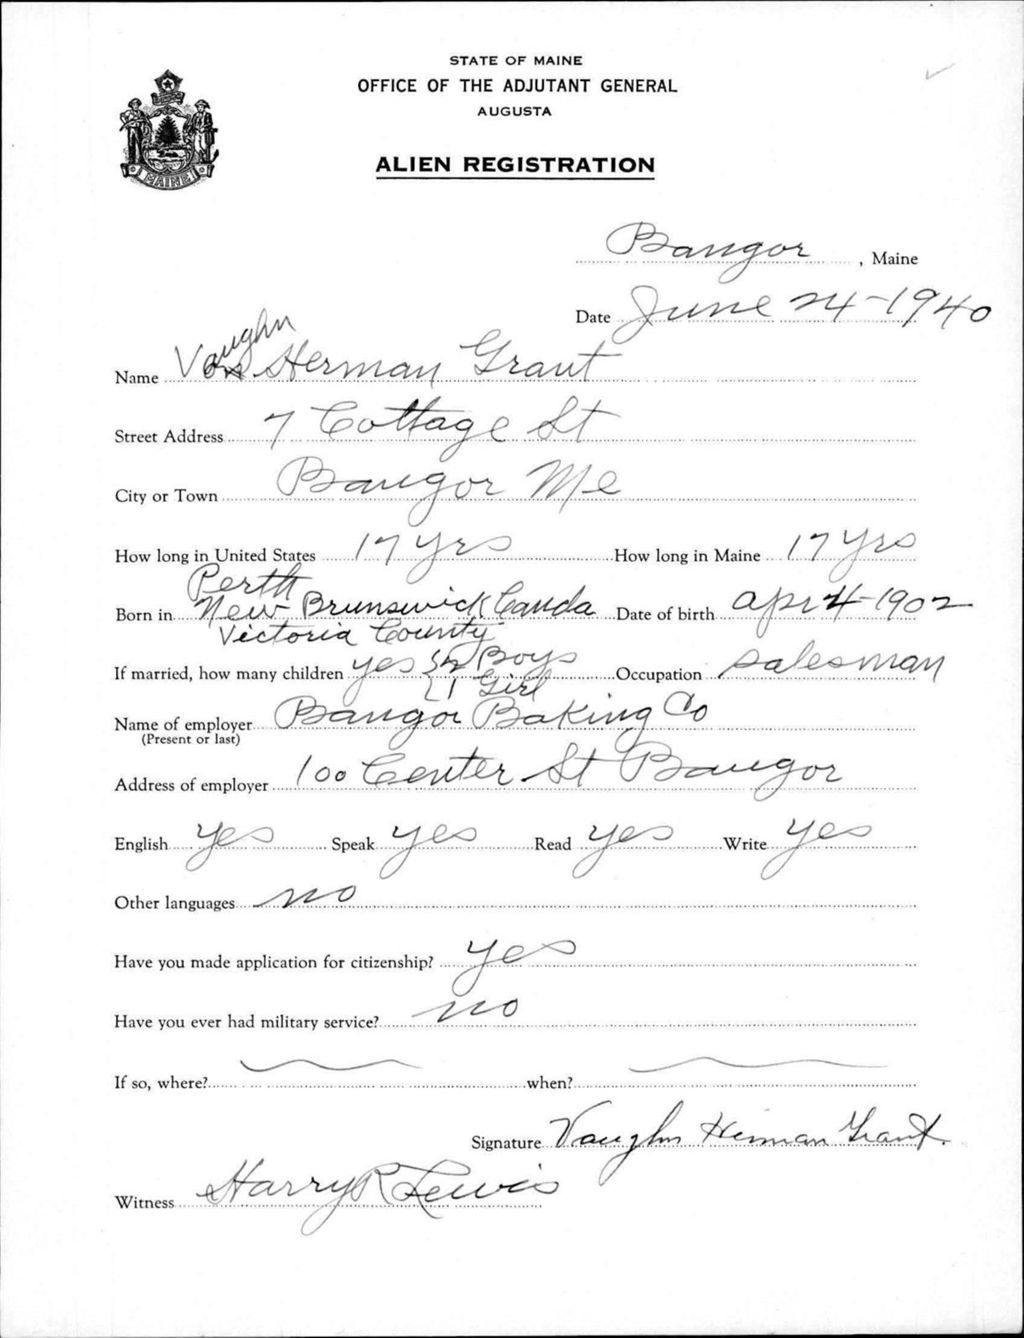 STATE OF MAINE
OFFICE OF THE ADJUTANT GENERAL
AUGUSTA
ALIEN REGISTRATION
MAINE
Bangor, Maine
Date June 24-1940
Vaughn
Name Herman Grant
Street Address 7 Cottage St
City or Town Bangor Me
How long in United States 17 yrs How long in Maine 17 yrs
Perth
Born in New Brunswick Canda Date of birth Apr 4-1902
Victoria County
If married, how many children yes { 2 Boys Occupation salesman
1 Girl
Name of employer Bangor Baking Co
(Present or last)
Address of employer 100 Center St Bangor
English yes Speak yes Read yes Write yes
Other languages no
Have you made application for citizenship? yes
Have you ever had military service? no
If so, where? when?
Signature Vaughn Herman Grant.
Witness Harry R Lewis